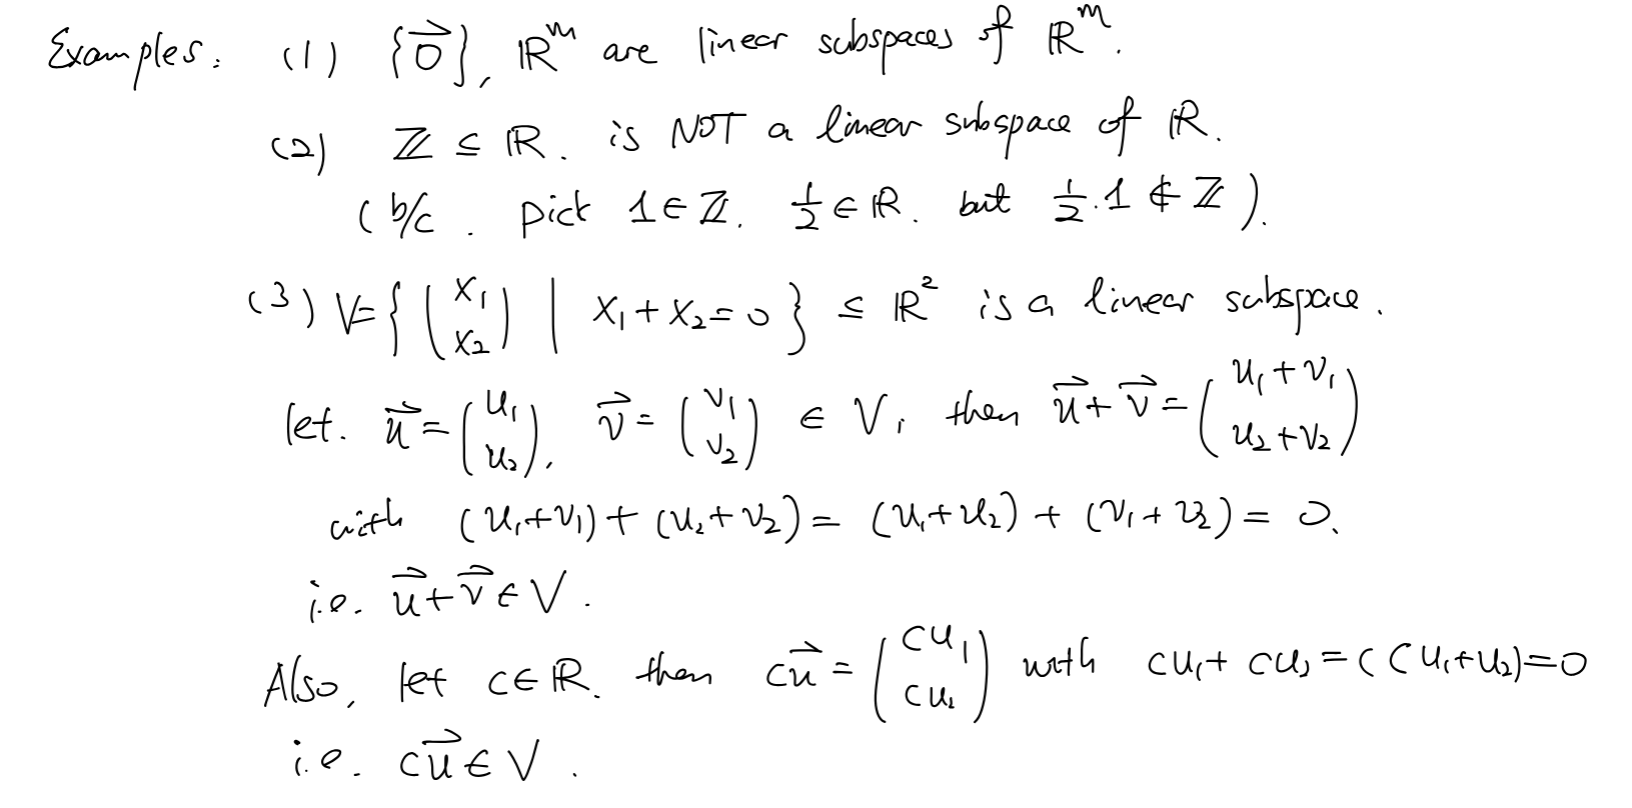 Examples: (1) {0⃗}, ℝᵐ are linear subspaces of ℝᵐ.
(2) ℤ ⊆ ℝ. is NOT a linear subspace of ℝ.
(b/c. pick 1 ∈ ℤ. 1/2 ∈ ℝ. but 1/2·1 ∉ ℤ).
(3) V = { (x₁ x₂) | x₁ + x₂ = 0 } ≤ ℝ² is a linear subspace.
let. u⃗ = (u₁ u₂), v⃗ = (v₁ v₂) ∈ V, then u⃗ + v⃗ = (u₁ + v₁ u₂ + v₂)
with (u₁ + v₁) + (u₂ + v₂) = (u₁ + u₂) + (v₁ + v₂) = 0.
i.e. u⃗ + v⃗ ∈ V.
Also, let c ∈ ℝ. then cu⃗ = (cu₁ cu₂) with cu₁ + cu₂ = c(u₁ + u₂) = 0
i.e. cu⃗ ∈ V.